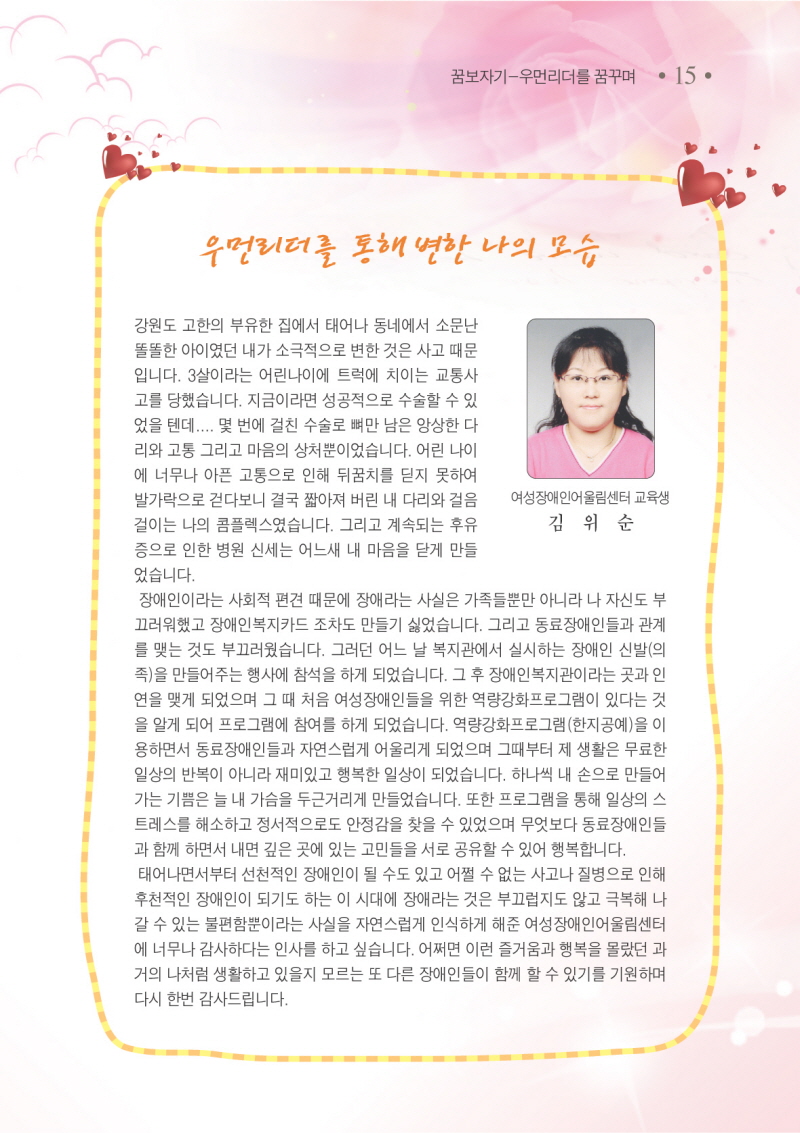 꿈보자기-우먼리더를 꿈꾸며 • 15 •
우먼리더를 통해 변한 나의 모습
강원도 고한의 부유한 집에서 태어나 동네에서 소문난
똘똘한 아이였던 내가 소극적으로 변한 것은 사고 때문
입니다. 3살이라는 어린나이에 트럭에 치이는 교통사
고를 당했습니다. 지금이라면 성공적으로 수술할 수 있
었을 텐데.... 몇 번에 걸친 수술로 뼈만 남은 앙상한 다
리와 고통 그리고 마음의 상처뿐이었습니다. 어린 나이
에 너무나 아픈 고통으로 인해 뒤꿈치를 딛지 못하여
발가락으로 걷다보니 결국 짧아져 버린 내 다리와 걸음
걸이는 나의 콤플렉스였습니다. 그리고 계속되는 후유
증으로 인한 병원 신세는 어느새 내 마음을 닫게 만들
었습니다.
여성장애인어울림센터 교육생
김 위 순
장애인이라는 사회적 편견 때문에 장애라는 사실은 가족들뿐만 아니라 나 자신도 부
끄러워했고 장애인복지카드 조차도 만들기 싫었습니다. 그리고 동료장애인들과 관계
를 맺는 것도 부끄러웠습니다. 그러던 어느 날 복지관에서 실시하는 장애인 신발(의
족)을 만들어주는 행사에 참석을 하게 되었습니다. 그 후 장애인복지관이라는 곳과 인
연을 맺게 되었으며 그 때 처음 여성장애인들을 위한 역량강화프로그램이 있다는 것
을 알게 되어 프로그램에 참여를 하게 되었습니다. 역량강화프로그램(한지공예)을 이
용하면서 동료장애인들과 자연스럽게 어울리게 되었으며 그때부터 제 생활은 무료한
일상의 반복이 아니라 재미있고 행복한 일상이 되었습니다. 하나씩 내 손으로 만들어
가는 기쁨은 늘 내 가슴을 두근거리게 만들었습니다. 또한 프로그램을 통해 일상의 스
트레스를 해소하고 정서적으로도 안정감을 찾을 수 있었으며 무엇보다 동료장애인들
과 함께 하면서 내면 깊은 곳에 있는 고민들을 서로 공유할 수 있어 행복합니다.
태어나면서부터 선천적인 장애인이 될 수도 있고 어쩔 수 없는 사고나 질병으로 인해
후천적인 장애인이 되기도 하는 이 시대에 장애라는 것은 부끄럽지도 않고 극복해 나
갈 수 있는 불편함뿐이라는 사실을 자연스럽게 인식하게 해준 여성장애인어울림센터
에 너무나 감사하다는 인사를 하고 싶습니다. 어쩌면 이런 즐거움과 행복을 몰랐던 과
거의 나처럼 생활하고 있을지 모르는 또 다른 장애인들이 함께 할 수 있기를 기원하며
다시 한번 감사드립니다.